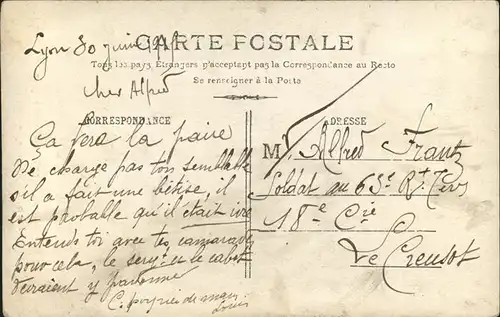 Lyon 30 juin
CARTE POSTALE
Tous les pays Etrangers n'acceptent pas la Correspondance au Recto
Se renseigner à la Poste
cher Alfred
CORRESPONDANCE
ADRESSE
Ça fera la paire
Ne charge pas ton semblable
s'il a fait une bêtise, il
est probable qu'il était ivre
Entends toi avec tes camarades
pour cela, le serg. et le cabot
devraient y pardonner
C. poignée de main
Louis
M. Alfred Frantz
Soldat au 65e Rt Terr
18e Cie
Le Creusot